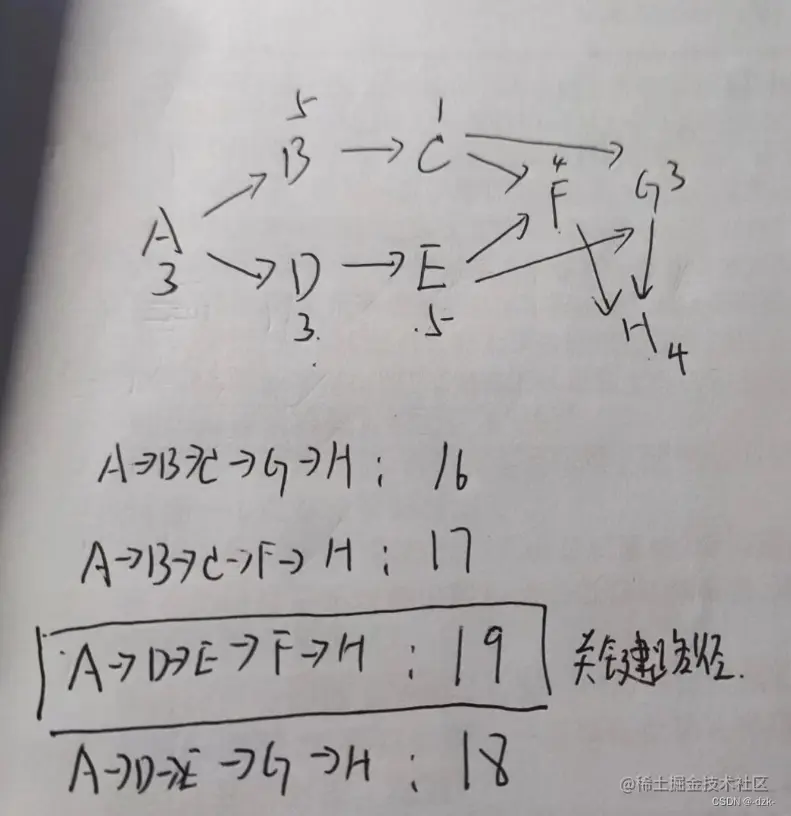 5 1
B → C
4
F G 3
A
3
D → E
3. .5
H 4
A→B→C→G→H : 16
A→B→C→F→H : 17
A→D→E→F→H : 19 关键路径.
A→D→E→G→H : 18
@稀土掘金技术社区
CSDN @-dzk-